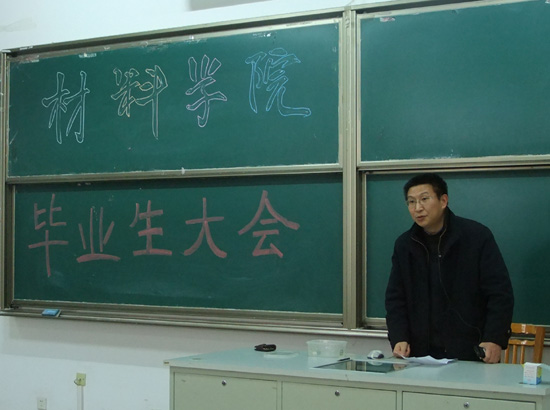 材料学院
毕业生大会